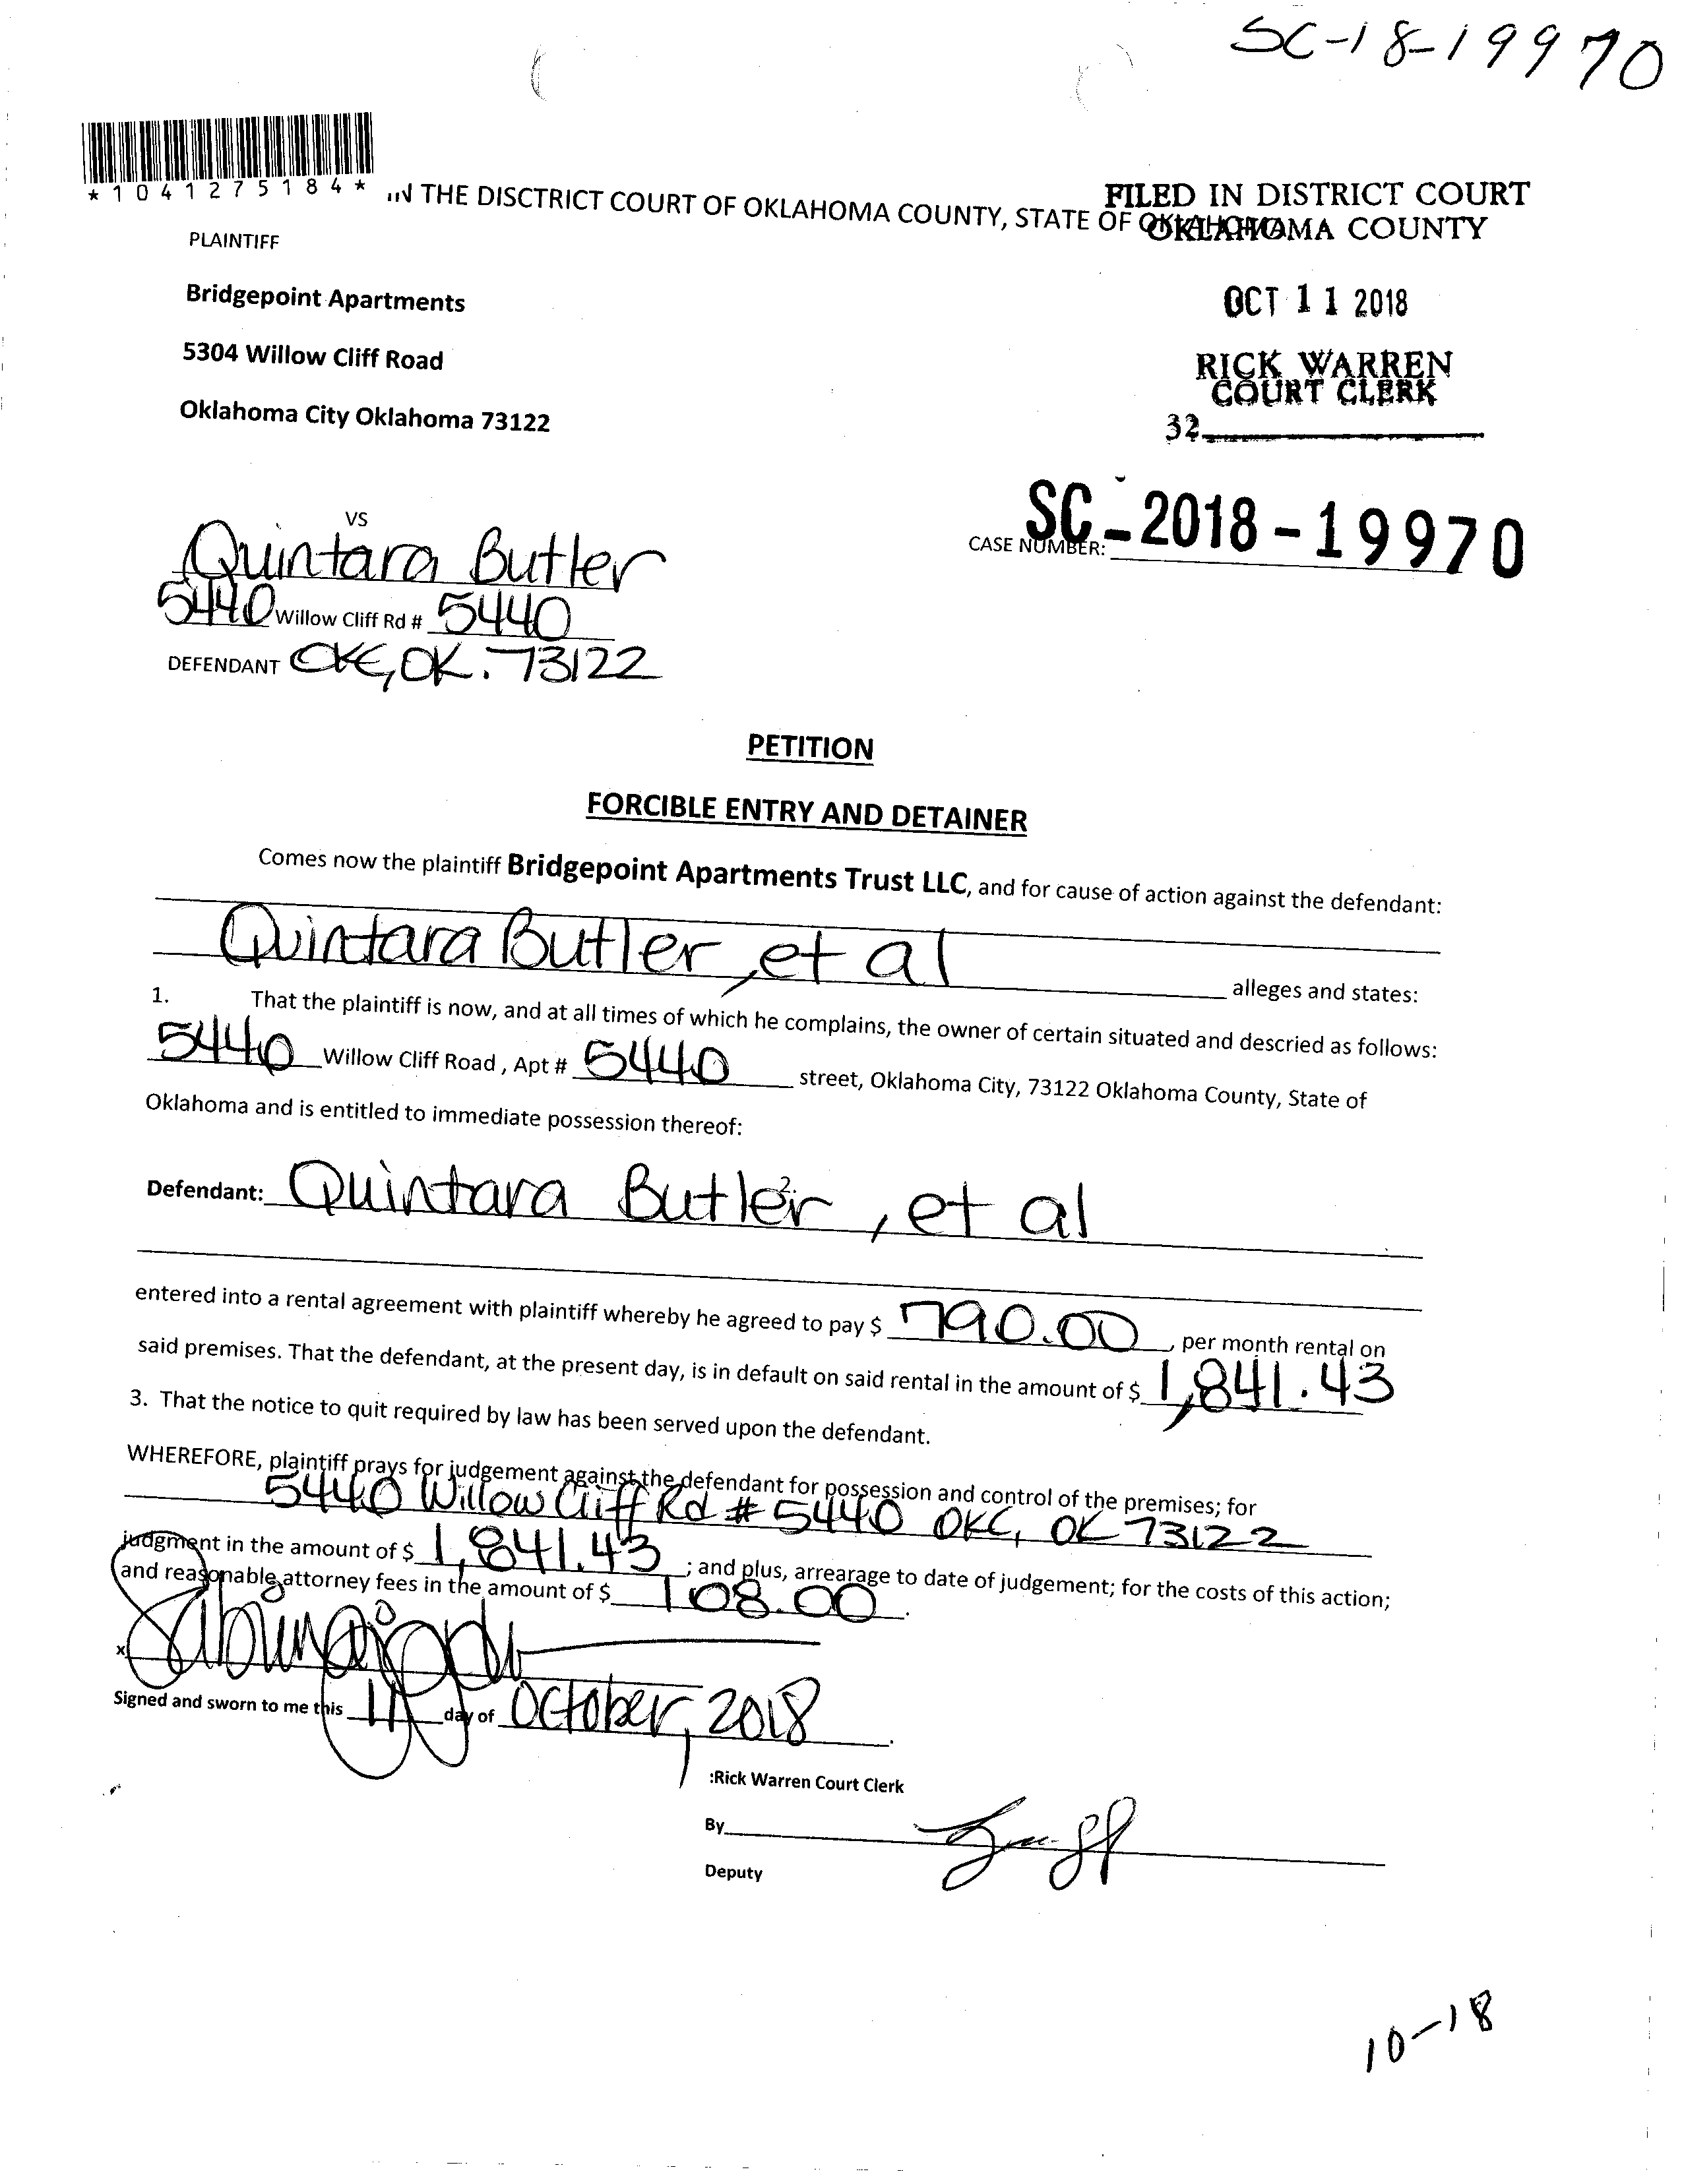 SC-18-19970
*1041275184*
IN THE DISCTRICT COURT OF OKLAHOMA COUNTY, STATE OF OKLAHOMA
FILED IN DISTRICT COURT
OKLAHOMA COUNTY
PLAINTIFF
Bridgepoint Apartments
OCT 11 2018
5304 Willow Cliff Road
RICK WARREN
COURT CLERK
Oklahoma City Oklahoma 73122
32
VS
CASE NUMBER: SC-2018-19970
Quintara Butler
5440 Willow Cliff Rd # 5440
DEFENDANT OKC, OK. 73122
PETITION
FORCIBLE ENTRY AND DETAINER
Comes now the plaintiff Bridgepoint Apartments Trust LLC, and for cause of action against the defendant:
Quintara Butler, et al alleges and states:
1. That the plaintiff is now, and at all times of which he complains, the owner of certain situated and descried as follows:
5440 Willow Cliff Road , Apt # 5440 street, Oklahoma City, 73122 Oklahoma County, State of
Oklahoma and is entitled to immediate possession thereof:
2.
Defendant: Quintara Butler, et al
entered into a rental agreement with plaintiff whereby he agreed to pay $ 790.00, per month rental on
said premises. That the defendant, at the present day, is in default on said rental in the amount of $ 1,841.43
3. That the notice to quit required by law has been served upon the defendant.
WHEREFORE, plaintiff prays for judgement against the defendant for possession and control of the premises; for
5440 Willow Cliff Rd # 5440 OKC, OK 73122
judgment in the amount of $ 1,841.43 ; and plus, arrearage to date of judgement; for the costs of this action;
and reasonable attorney fees in the amount of $ 108.00.
x
Signed and sworn to me this 11 day of October, 2018.
:Rick Warren Court Clerk
By
Deputy
10-18